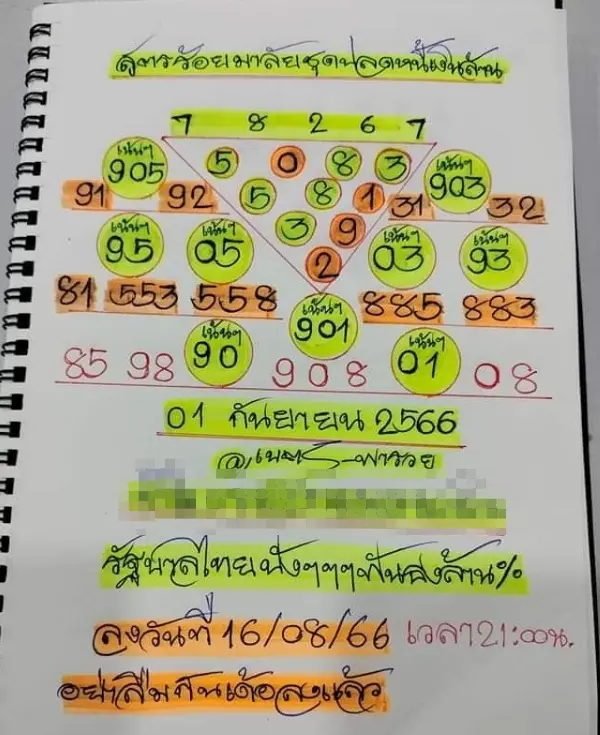 สูตรร้อยมาลัยชุดปลดหนี้เงินล้าน
7 8 2 6 7
เน้นๆ 5 0 8 3 เน้นๆ
905 903
91 92 5 8 1 31 32
เน้นๆ เน้นๆ 3 9 เน้นๆ เน้นๆ
95 05 2 03 93
81 553 558 885 883
เน้นๆ
901
เน้นๆ เน้นๆ
85 98 90 908 01 08
01 กันยายน 2566
รัฐบาลไทย
ลงวันที่ 16/08/66 เวลา 21:00น.
อย่าลืมกันเด้อลงแล้ว